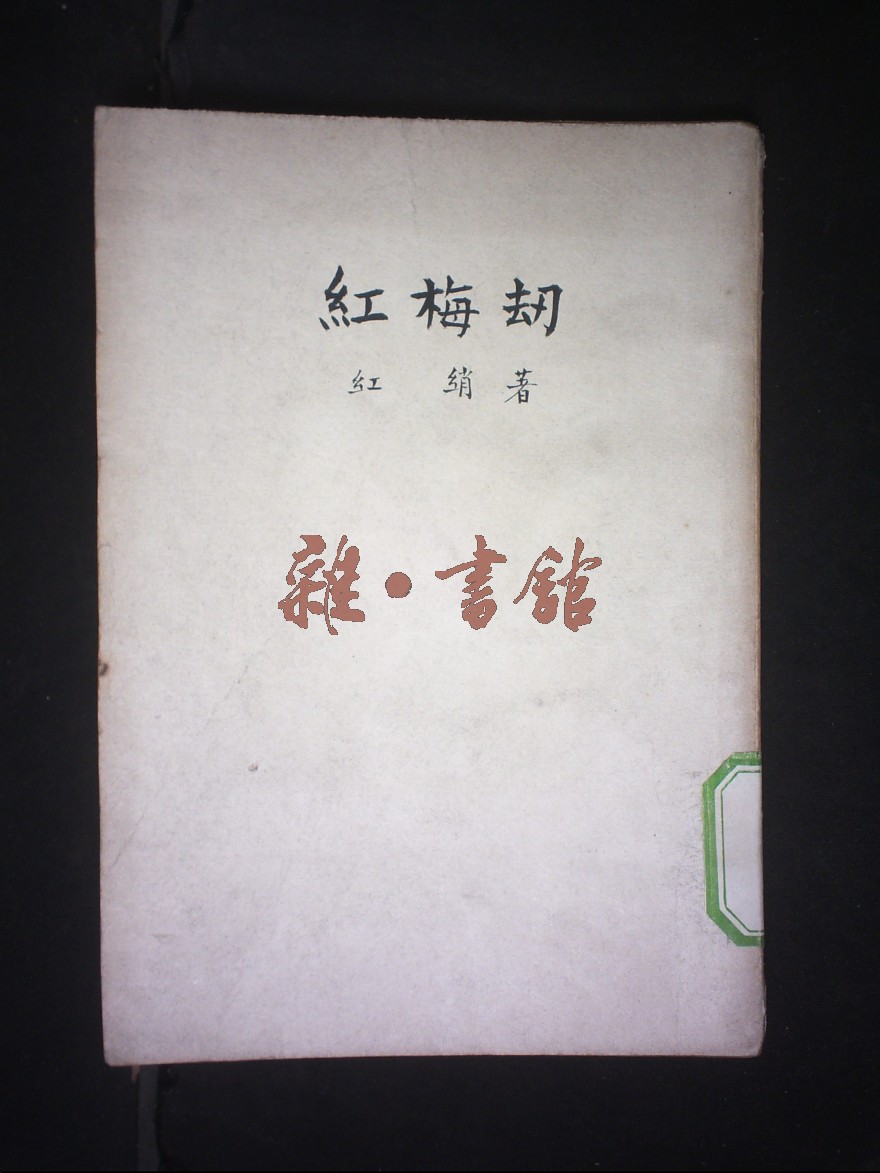 紅梅刼
紅綃著
雜•書館